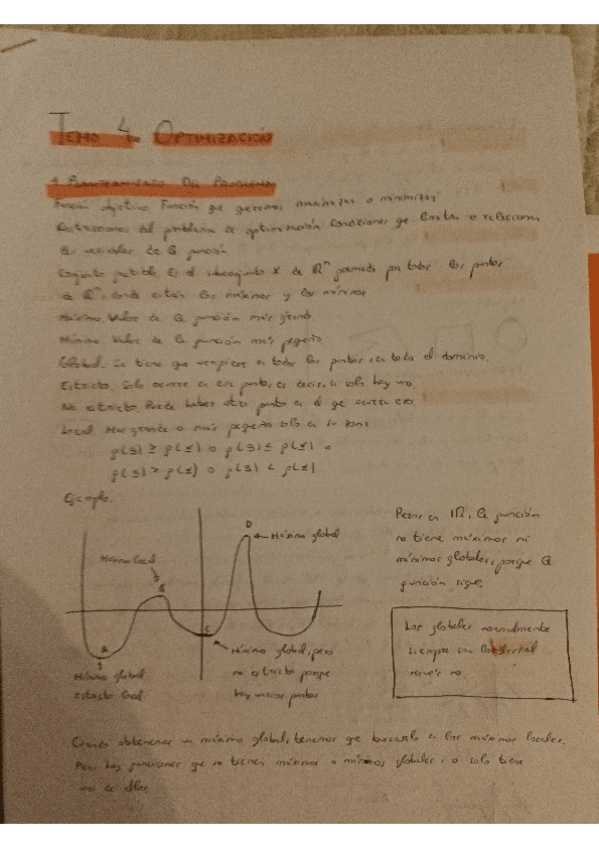 TEMA 4. OPTIMIZACIÓN
1. PLANTEAMIENTO DEL PROBLEMA
Función objetivo. Función que queremos maximizar o minimizar
Restricciones del problema de optimización. Condiciones que limitan o relacionan
las variables de la función
Conjunto factible. Es el subconjunto X de ℝⁿ formado por todos los puntos
de ℝⁿ, donde están los máximos y los mínimos
Máximo. Valor de la función más grande
Mínimo. Valor de la función más pequeño
Global. Se tiene que en todos los puntos, en todo el dominio.
Estricto. Solo ocurre en ese punto, es decir, si solo hay uno
No estricto. Puede haber otro punto en el que ocurra eso
Local. Más grande o más pequeño solo en su zona
Ejemplo.
D
Máximo global
Máximo local
B
C
A
Mínimo global
estricto local
Mínimo global, pero
no estricto porque
hay varios puntos
Pero en ℝ, la función
no tiene máximos ni
mínimos globales, porque la
función sigue.
Los globales normalmente
siempre son locales, al
revés no.
un máximo global, tenemos que buscarlo en los máximos locales.
Pero hay funciones que no tienen máximos o mínimos globales, o solo tiene
uno de ellos